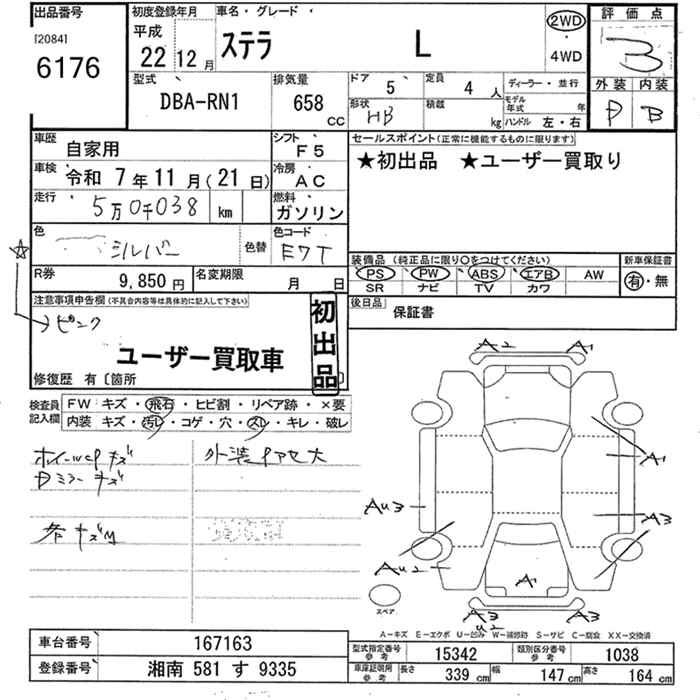 出品番号
[2084]
6176
初度登録年月
平成
22年12月
車名・グレード
ステラ L
2WD
・
4WD
評価点
3
外装 内装
D B
型式
DBA-RN1
排気量
658
cc
ドア
5
定員
4人
ディーラー・並行
形状
HB
積載
kg
モデル年式
年
ハンドル 左・右
車歴
自家用
シフト
F5
セールスポイント(正常に機能するものに限ります)
★初出品 ★ユーザー買取り
車検
令和 7年11月(21日)
冷房
AC
走行
5万0千038 km
燃料
ガソリン
色
シルバー
色替
色コード
E7T
☆
装備品(純正品に限り○をつけてください)
新車保証書
PS PW ABS エアB AW
SR ナビ TV カワ
有・無
R券
9,850円
名変期限
月 日
後日品
保証書
注意事項申告欄(不具合内容等は具体的に記入して下さい)
→ピンク
初出品
ユーザー買取車
修復歴 有〔箇所 〕
検査員記入欄
FW キズ・飛石・ヒビ割・リペア跡・×要
内装 キズ・汚レ・コゲ・穴・スレ・キレ・破レ
ホイールcPキズ
Dミラーキズ
外装
大
各キズM
A2 A1
A1
AU3
A3
AU2
A1
A3
U2
A3
スペア
A-キズ E-エクボ U-凹み W-補修跡 S-サビ C-腐蝕 XX-交換済
車台番号
167163
登録番号
湘南 581 す 9335
型式指定番号
参考
15342
類別区分番号
参考
1038
車庫証明用
参考
長さ 339 cm 幅 147 cm 高さ 164 cm